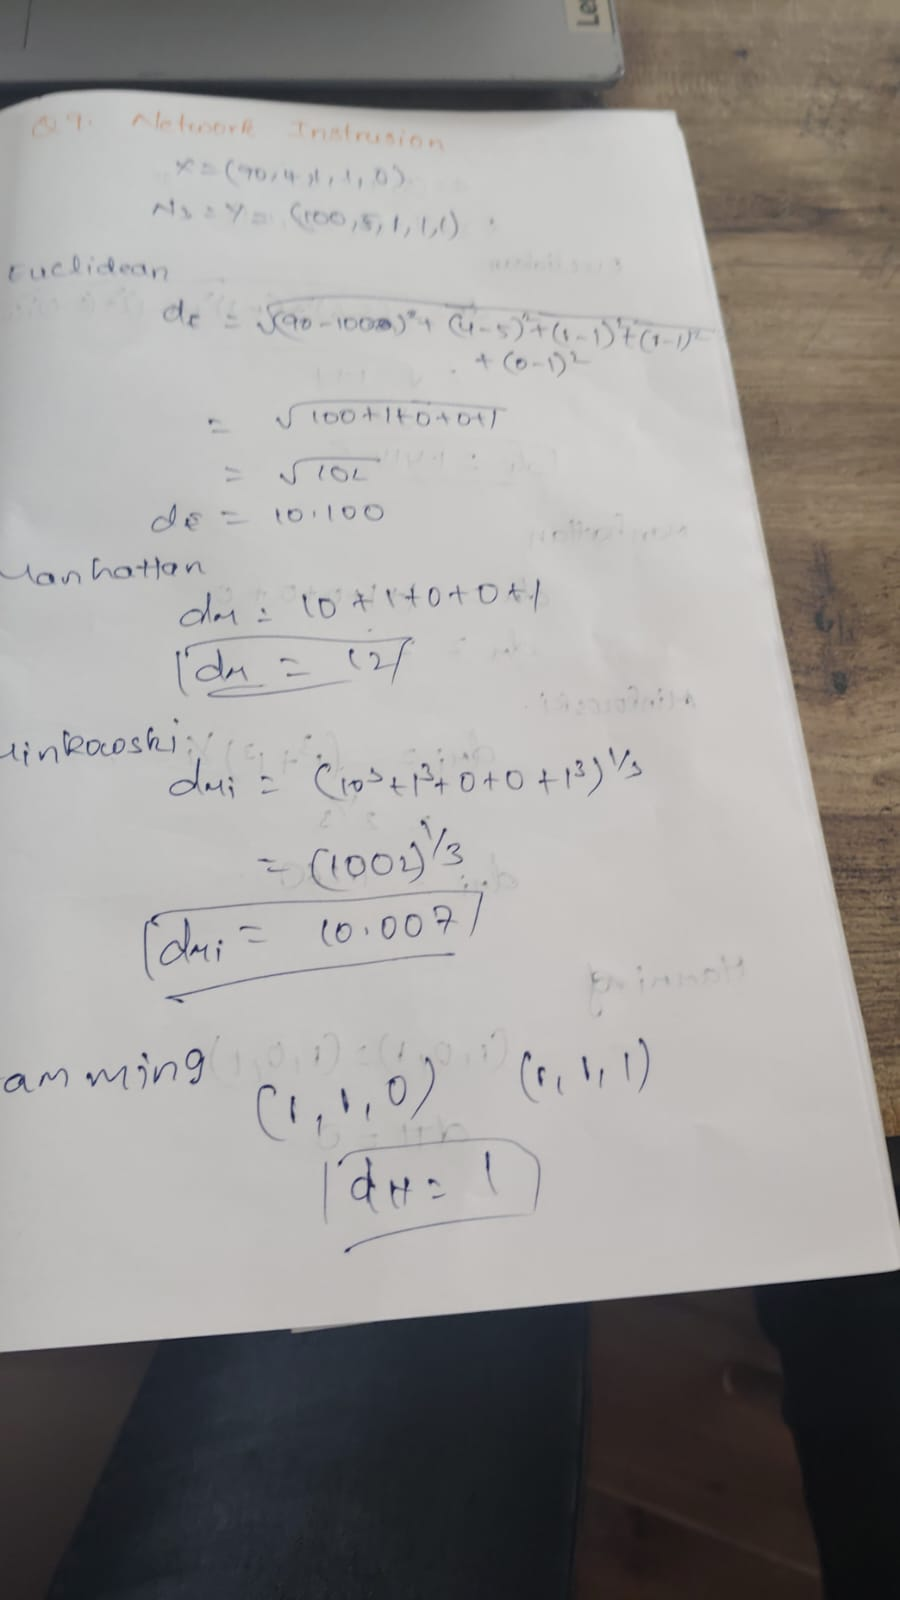 Q9. Network Instrusion
x = (90, 4, 1, 1, 0)
N3 = Y = (100, 5, 1, 1, 1)
Euclidean
dE = √(90-100)² + (4-5)² + (1-1)² + (1-1)²
+ (0-1)²
= √100+1+0+0+1
= √102
dE = 10.100
Manhattan
dM = 10+1+0+0+1
dM = 12
Minkowoski
dMi = (10³+1³+0+0+1³)^1/3
= (1002)^1/3
dMi = 10.007
amming
(1, 1, 0) (1, 1, 1)
dH = 1